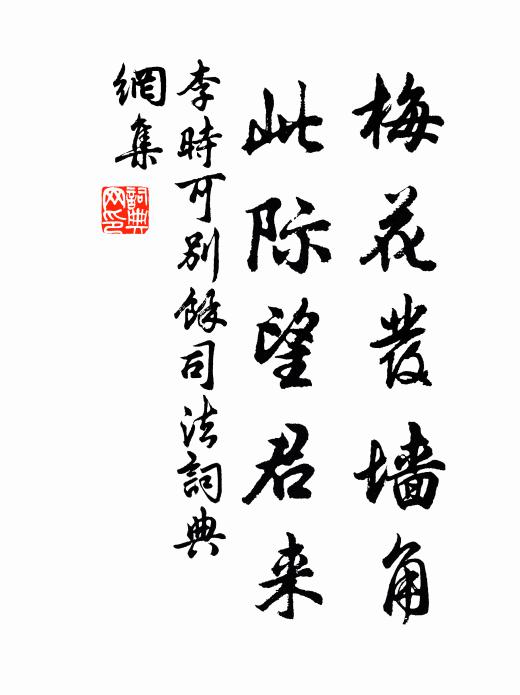 梅花發墙角
此际望君来
李時可別餘司法詞典
網集
詞典
网印